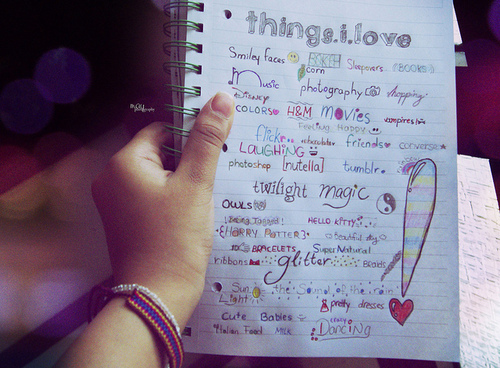 things.i.love
Smiley faces BEACH Sleepovers {BOOKS}
corn
Music photography shopping
DISNEY
COLORS H&M MOVIES vampires
Feeling Happy
flickr chocolate friends converse
LAUGHING
photoshop [nutella] tumblr.
twilight magic
OWLS
being Tagged! HELLO KITTY
{HARRY POTTER} beautiful day
BRACELETS SuperNatural
ribbons glitter Braids
Sun the Sound of the rain
Light pretty dresses
Cute Babies crazy
Italian Food MILK Dancing
photography